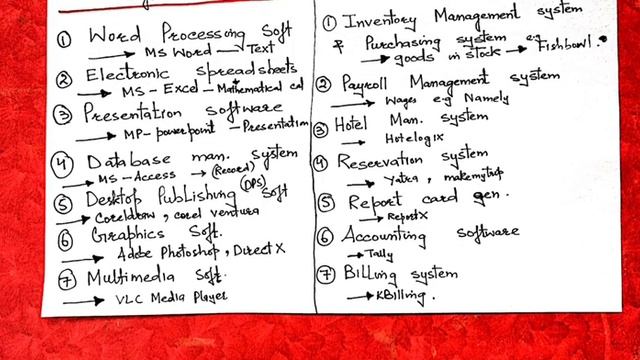 ① Word Processing Soft
→ MS Word → Text
② Electronic Spreadsheets
→ MS-Excel - Mathematical cal
③ Presentation software
→ MP-powerpoint - Presentation
④ Database man. system
→ MS-Access → (Record)
⑤ Desktop Publishing (DPS) Soft
→ Coreldraw, corel ventura
⑥ Graphics Soft.
→ Adobe Photoshop, Direct X
⑦ Multimedia Soft.
→ VLC Media Player
① Inventory Management system
& Purchasing system
→ goods in stock → e.g. Fishbowl.
② Payroll Management system
→ Wages e.g Namely
③ Hotel Man. system
→ Hotelogix
④ Reservation system
→ Yatra, makemytrip
⑤ Report card gen.
→ ReportX
⑥ Accounting software
→ Tally
⑦ Billing system
→ KBilling.